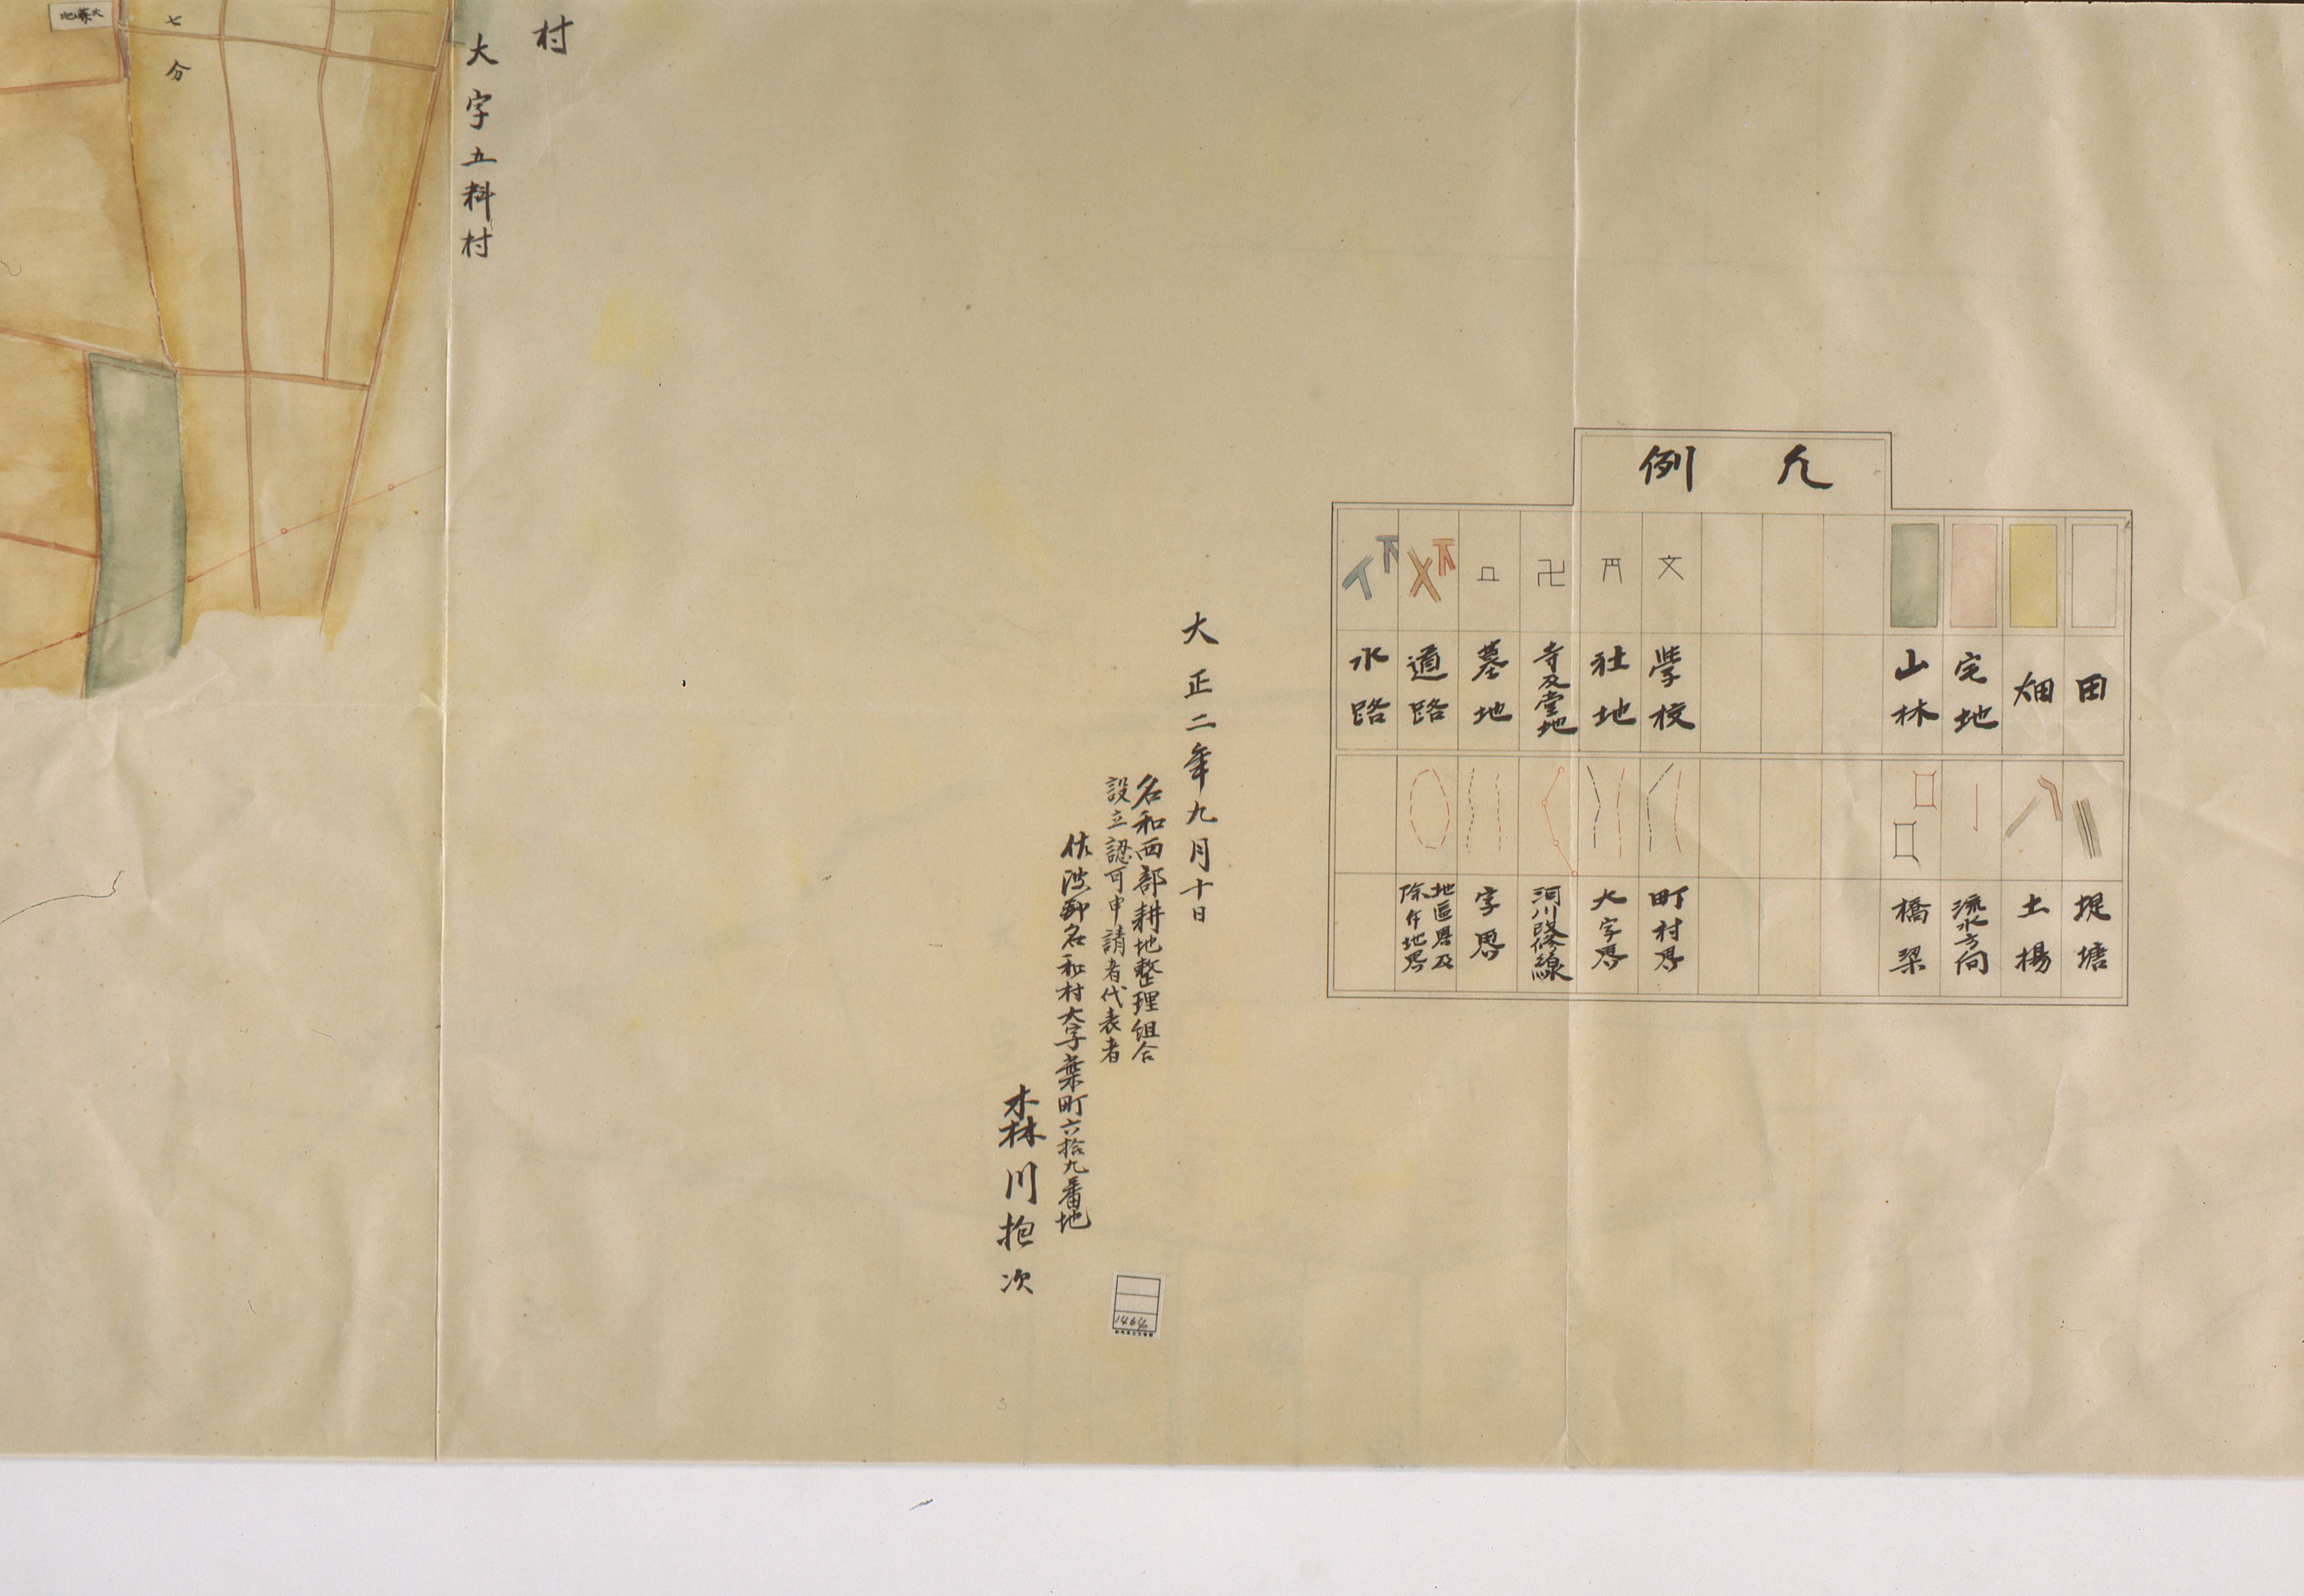 凡例
田
畑
宅地
山林
學校
社地
寺及堂地
墓地
道路
水路
堤塘
土揚
流水方向
橋梁
町村界
大字界
河川改修線
字界
地區界及
除斥地界
大正二年九月十日
名和西部耕地整理組合
設立認可申請者代表者
佐波郡名和村大字柴町六拾九番地
森川抱次
1464
3
村
大字五料村
七分